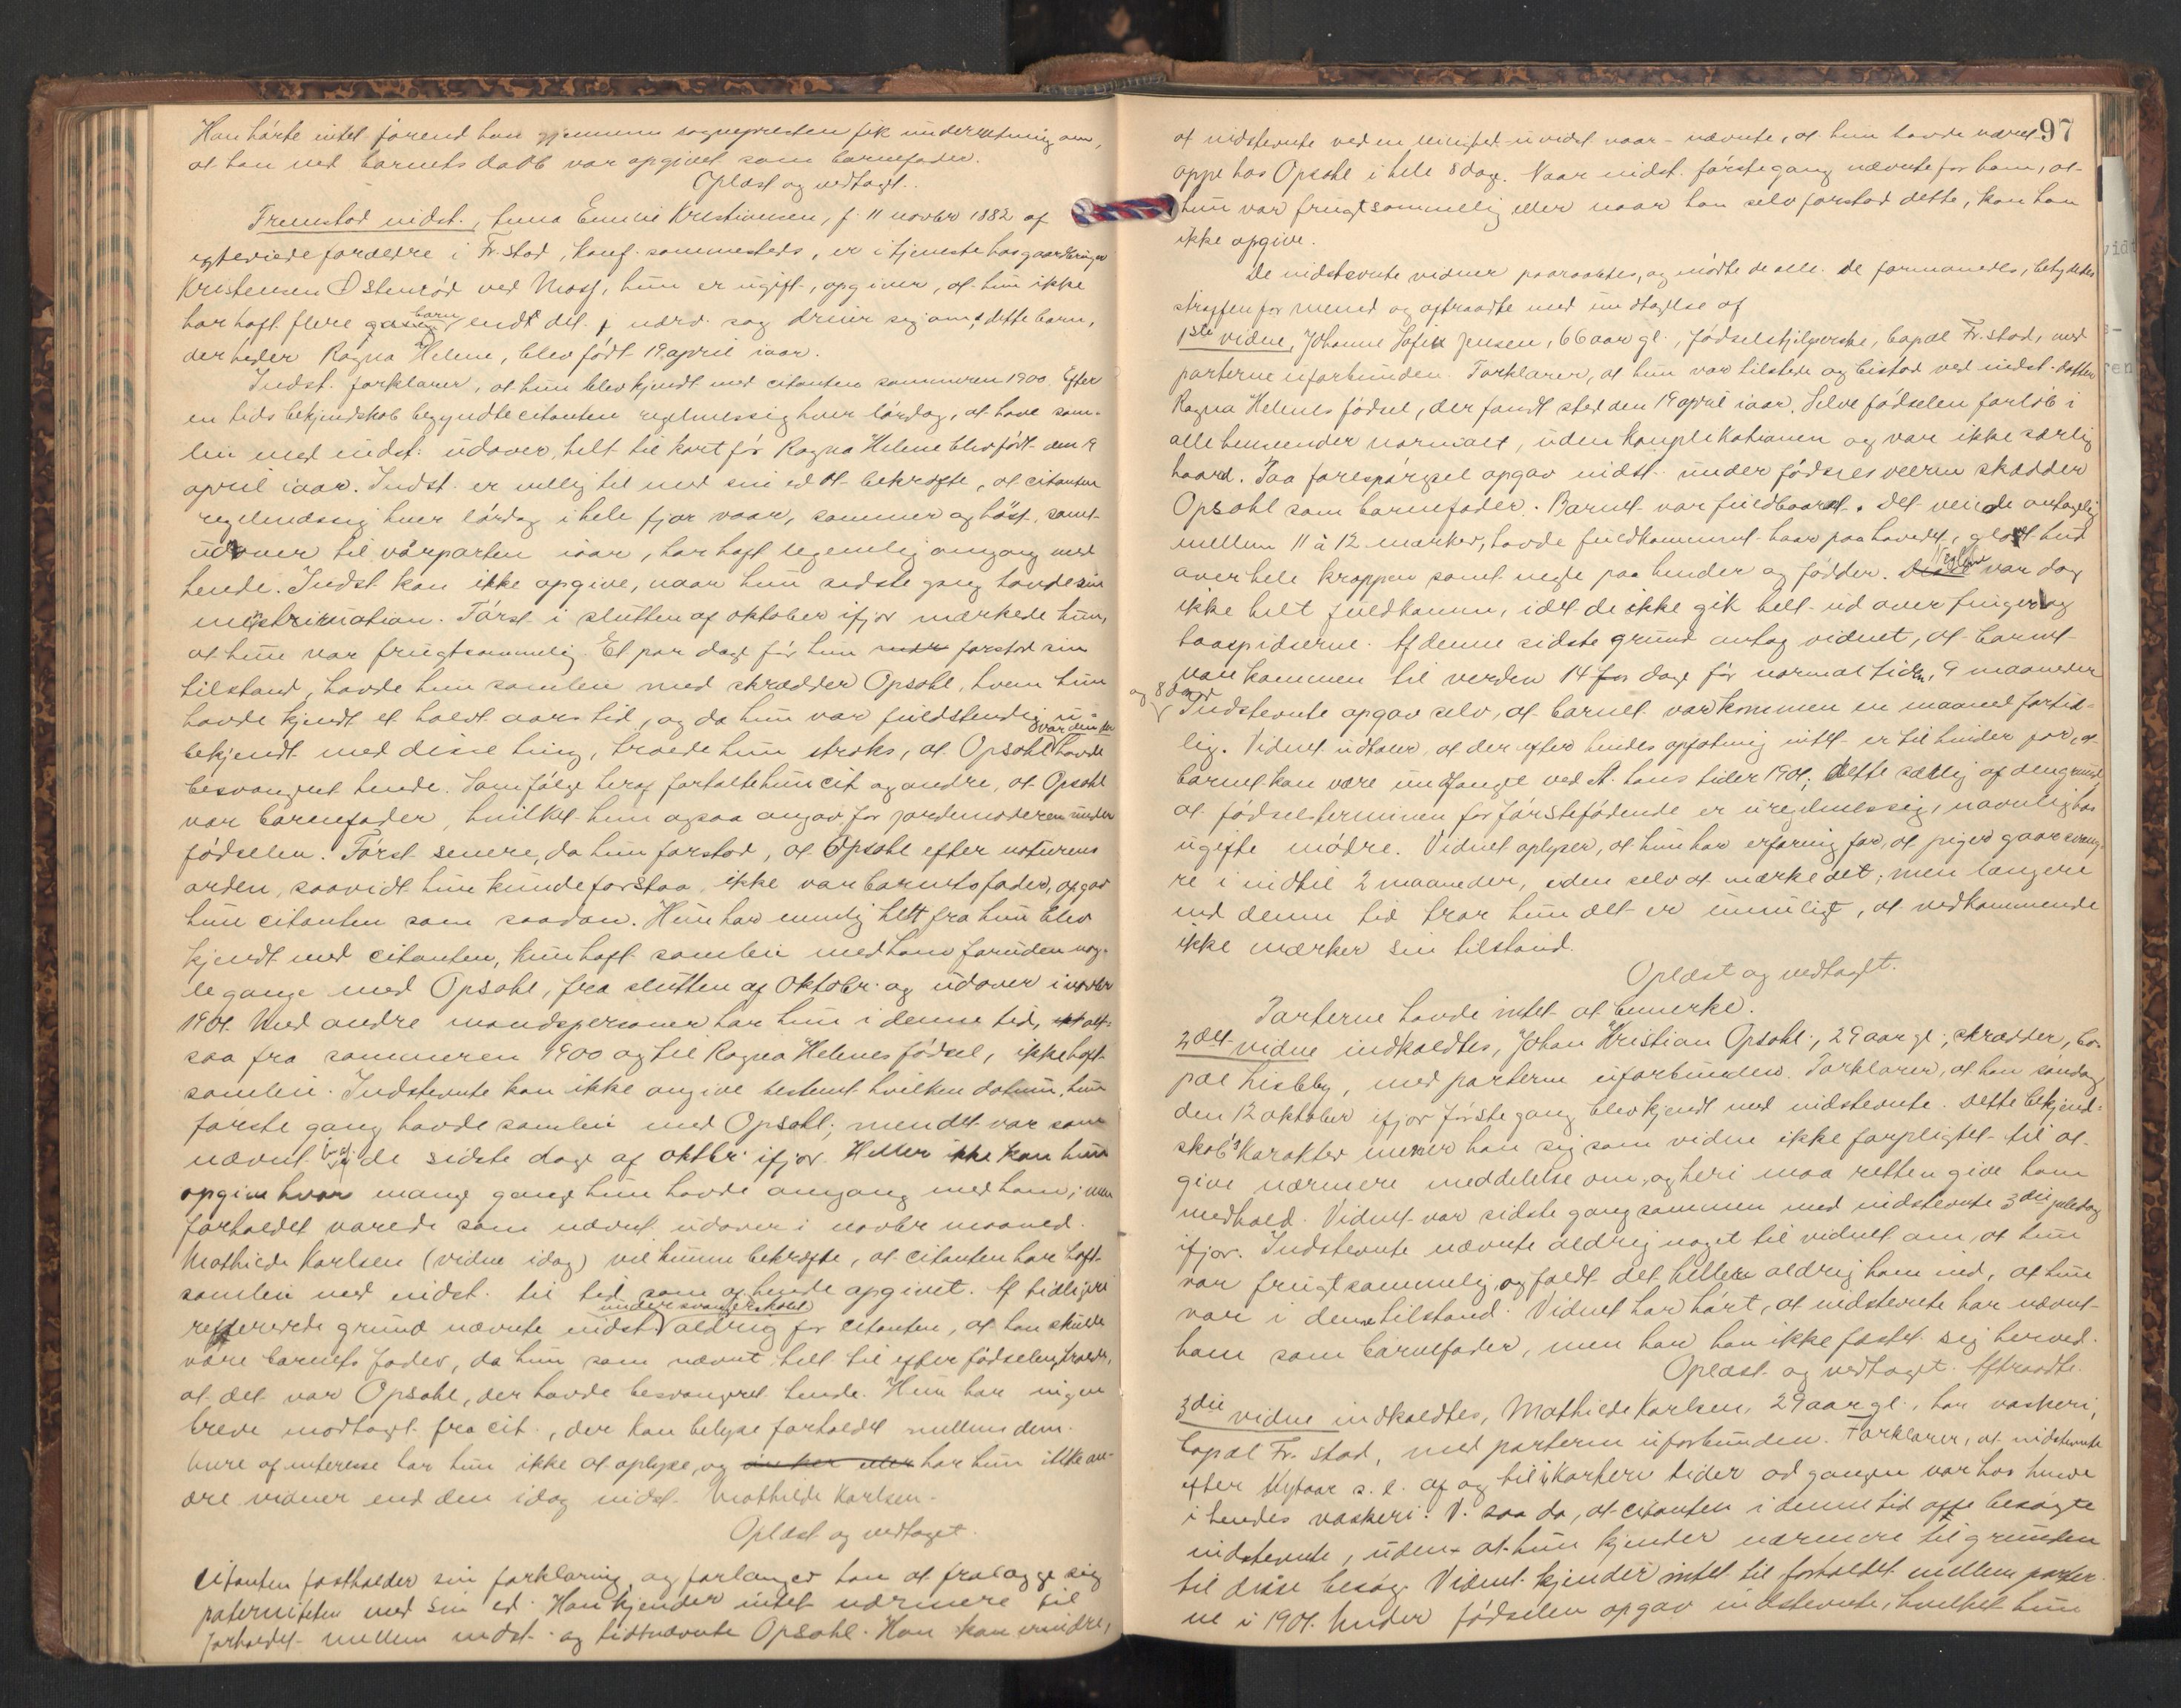 Han hørte intet førend han gjennem sognepresten fik underretning om,
at han ved barnets daab var opgivet som barnefader.
Oplæst og vedtaget.
Fremstod indst., Anna Emilie Kristiansen, f. 11 novbr 1882 af
egteviede forældre i Fr.stad, konf. sammesteds, er i tjeneste hos gaardbruger
Kristensen Østenrød ved Moss, hun er ugift, opgiver, at hun ikke
har haft flere barn endt det, nærv. sag dreier sig om; dette barn,
der heder Ragna Helene, blev født 19 april iaar.
Indst. forklarer, at hun blev kjendt med citanten sommeren 1900. Efter
en tids bekjendskab begyndte citanten regelmessig hver lørdag, at have sam-
lei med indst. udover, helt til kort før Ragna Helene blev født den 19
april iaar. Indst. er villig til med sin ed at bekræfte, at citanten
regelmæssig hver lørdag i hele fjor vaar, sommer og høst, samt
udover til vårparten iaar, har haft legemlig omgang med
hende. Indst. kan ikke opgive, naar hun sidste gang havde sin
menstruation. Først i slutten af oktober ifjor mærkede hun,
at hun var frugtsommelig. Et par dage før hun forstod sin
tilstand, havde hun samleie med skrædder Opsahl, hvem hun
havde kjendt et halvt aars tid, og da hun var fuldstendig u-
bekjendt med disse ting, troede hun straks, at Opsahl var den der havde
besvangret hende. Som følge heraf fortalte hun cit. og andre, at Opsahl
var barnefader, hvilket hun ogsaa angav for jordemoderen under
fødselen. Først senere, da hun forstod, at Opsahl efter naturens
orden, saavidt hun kunde forstaa, ikke var barnets fader, opgav
hun citanten som saadan. Hun har nemlig helt fra hun blev
kjendt med citanten, kun haft samleie med ham foruden nog-
le gange med Opsahl, fra slutten af oktobr. og udover i novbr
1901. Med andre mandspersoner har hun i denne tid, alt-
saa fra sommeren 1900 og til Ragna Helenes fødsel, ikke haft
samleie. Indstevnte kan ikke angive bestemt hvilken datum, hun
første gang havde samleie med Opsahl; men det var som
nævnt i de sidste dage af oktbr. ifjor. Heller ikke kan hun
opgive hvor mange gange hun havde omgang med ham; men
forholdet varede som nævnt udover i novbr maaned.
Mathilde Karlsen (vidne idag) vil kunne bekræfte, at citanten har haft
samleie med indst. til tid som af hende opgivet. Af tidligere
refererede grund nævnte indst. under svangerskabet aldrig for citanten, at han skulde
være barnets fader, da hun som nævnt helt til efter fødselen troede,
at det var Opsahl, der havde besvangret hende. Hun har ingen
breve modtaget fra cit., der kan belyse forholdet mellem dem.
Mere af interesse har hun ikke at oplyse, og har hun ikke an-
dre vidner end den idag indst. Mathilde Karlsen.
Oplæst og vedtaget.
Citanten fastholder sin forklaring og forlanger han at fralægge sig
paterniteten med sin ed. Han kjender intet nærmere til
forholdet mellem indst. og tidtnævnte Opsahl. Han kan erindre,
97
at indstevnte ved en leilighed - uvidst naar - nævnte, at hun havde været
oppe hos Opsahl i hele 8 dage. Naar indst. første gang nævnte for ham, at
hun var frugtsommelig eller naar han selv forstod dette, kan han
ikke opgive.
De indstevnte vidner paaraabtes, og mødte de alle. De formanedes, betydedes
straffen for mened og aftraadte med undtagelse af
1ste vidne, Johanne Sofie Jensen, 66 aar gl., fødselshjelperske, bopæl Fr.stad, med
parterne uforbunden. Forklarer, at hun var tilstede og bistod ved indst. datter
Ragna Helenes fødsel, der fandt sted den 19 april iaar. Selve fødselen forløb i
alle henseender normalt, uden komplikationer og var ikke særlig
haard. Paa forespørgsel opgav indst. under fødselsveerne skrædder
Opsahl som barnefader. Barnet var fuldbaaret. Det veiede antagelig
mellem 11 à 12 marker, havde fuldkomment haar paa hovedet, glat hud
over hele kroppen samt negle paa hender og fødder. Neglene var dog
ikke helt fuldkomne, idet de ikke gik helt ud over finger og
taaspidserne. Af denne sidste grund antog vidnet, at barnet
var kommen til verden 14 dage før normal tiden, 9 maaneder
og 8 dage. Indstevnte opgav selv, at barnet var kommen en maaned fortid-
lig. Vidnet udtaler, at der efter hendes opfatning intet er til hinder for, at
barnet kan være undfanget ved St. Hans tider 1901; dette særlig af den grund,
at fødselsterminen for førstefødende er uregelmessig, navnlig hos
ugifte mødre. Vidnet oplyser, at hun har erfaring for, at piger gaar svang-
re i indtil 2 maaneder, uden selv at mærke det; men længere
end denne tid tror hun det er umuligt, at vedkommende
ikke mærker sin tilstand.
Oplæst og vedtaget.
Parterne havde intet at bemerke.
2det vidne indkaldtes, Johan Kristian Opsahl, 29 aar gl., skrædder, bo-
pæl Lisleby, med parterne uforbunden. Forklarer, at han søndag
den 12 oktober ifjor første gang blev kjendt med indstevnte. Dette bekjend-
skabs karakter mener han sig som vidne ikke forpligtet til at
give nærmere meddelelse om, og heri maa retten give ham
medhold. Vidnet var sidste gang sammen med indstevnte 3die juledag
ifjor. Indstevnte nævnte aldrig noget til vidnet om, at hun
var frugtsommelig, og faldt det heller aldrig ham ind, at hun
var i denne tilstand. Vidnet har hørt, at indstevnte har nævnt
ham som barnefader, men har han ikke fæstet sig herved.
Oplæst og vedtaget. Aftraadte.
3die vidne indkaldtes, Mathilde Karlsen, 29 aar gl., har vaskeri,
bopæl Fr.stad, med parterne uforbunden. Forklarer, at indstevnte
efter Nytaar s. l. af og til i kortere tider ad gangen var hos hende
i hendes vaskeri. V. saa da, at citanten i denne tid ofte besøgte
indstevnte, uden at hun kjender nærmere til grunden
til disse besøg. Vidnet kjender intet til forholdet mellem parter-
ne i 1901. Under fødselen opgav indstevnte, hvilket hun